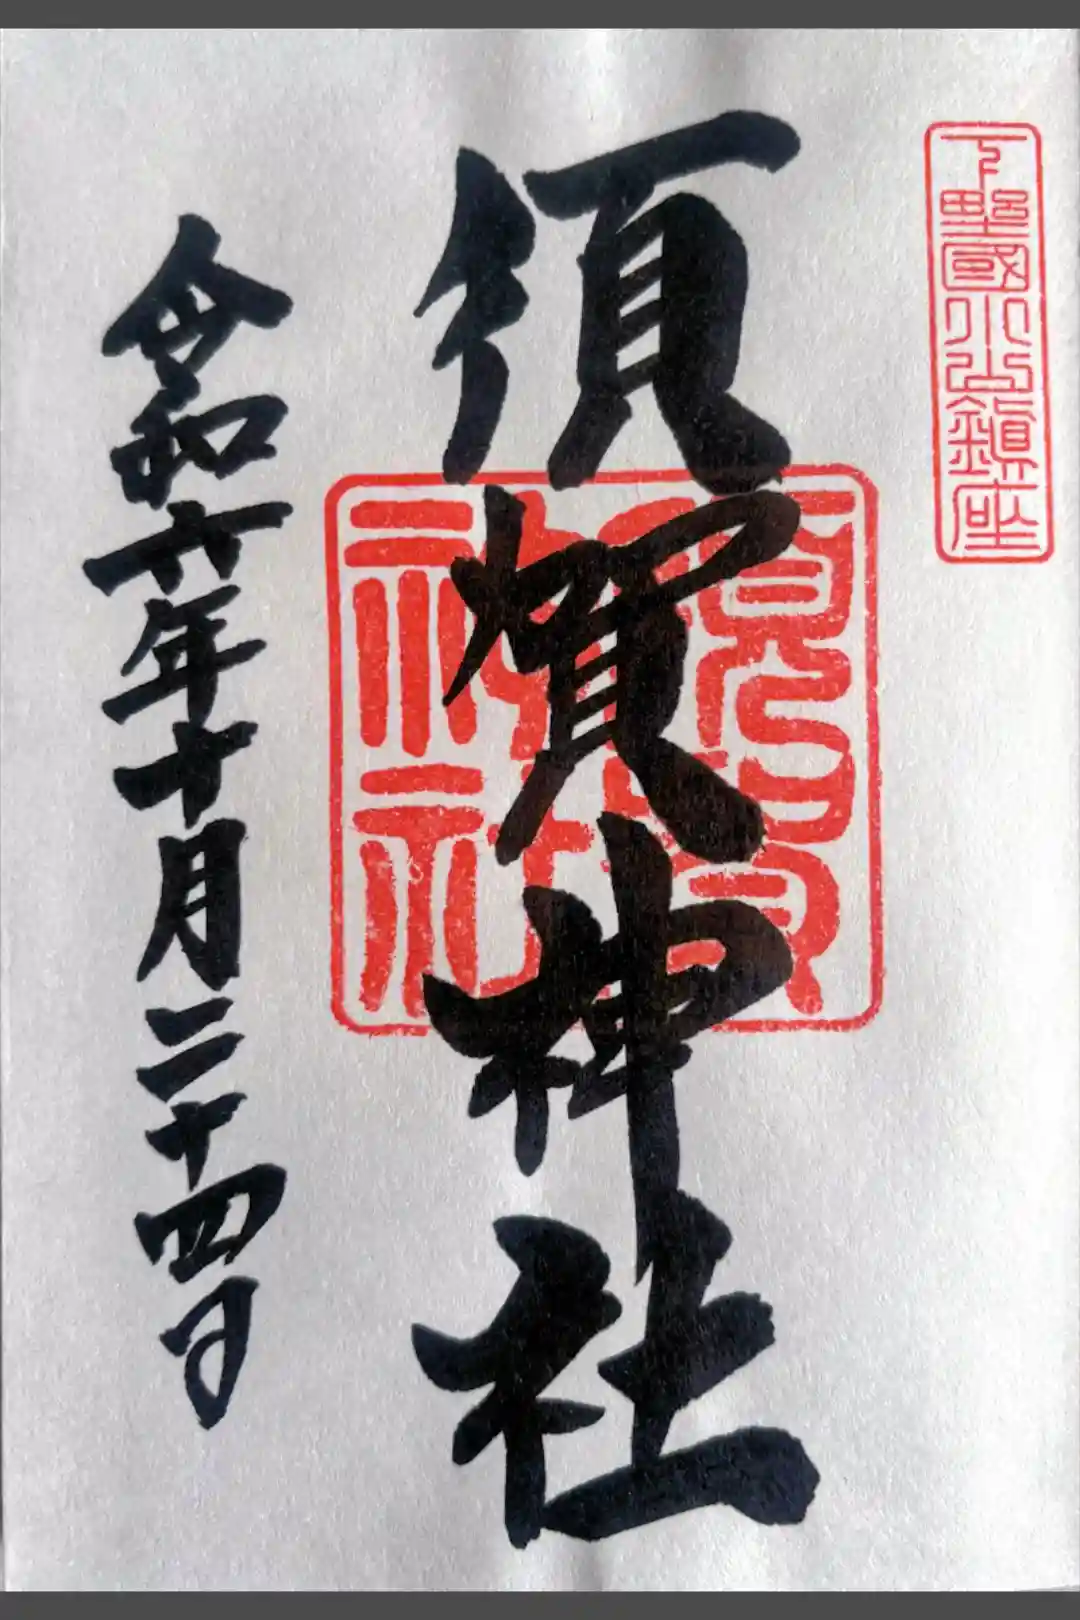 下野國小山鎮座
須賀神社
須賀神社
令和六年十月二十四日